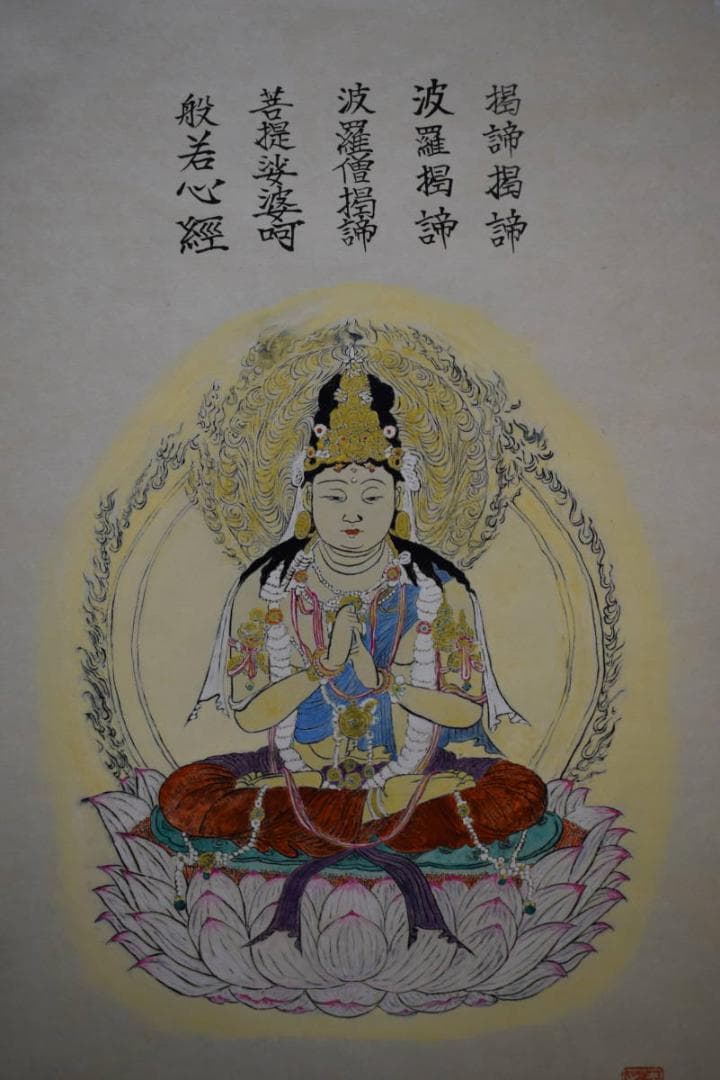 揭諦揭諦
波羅揭諦
波羅僧揭諦
菩提娑婆呵
般若心經